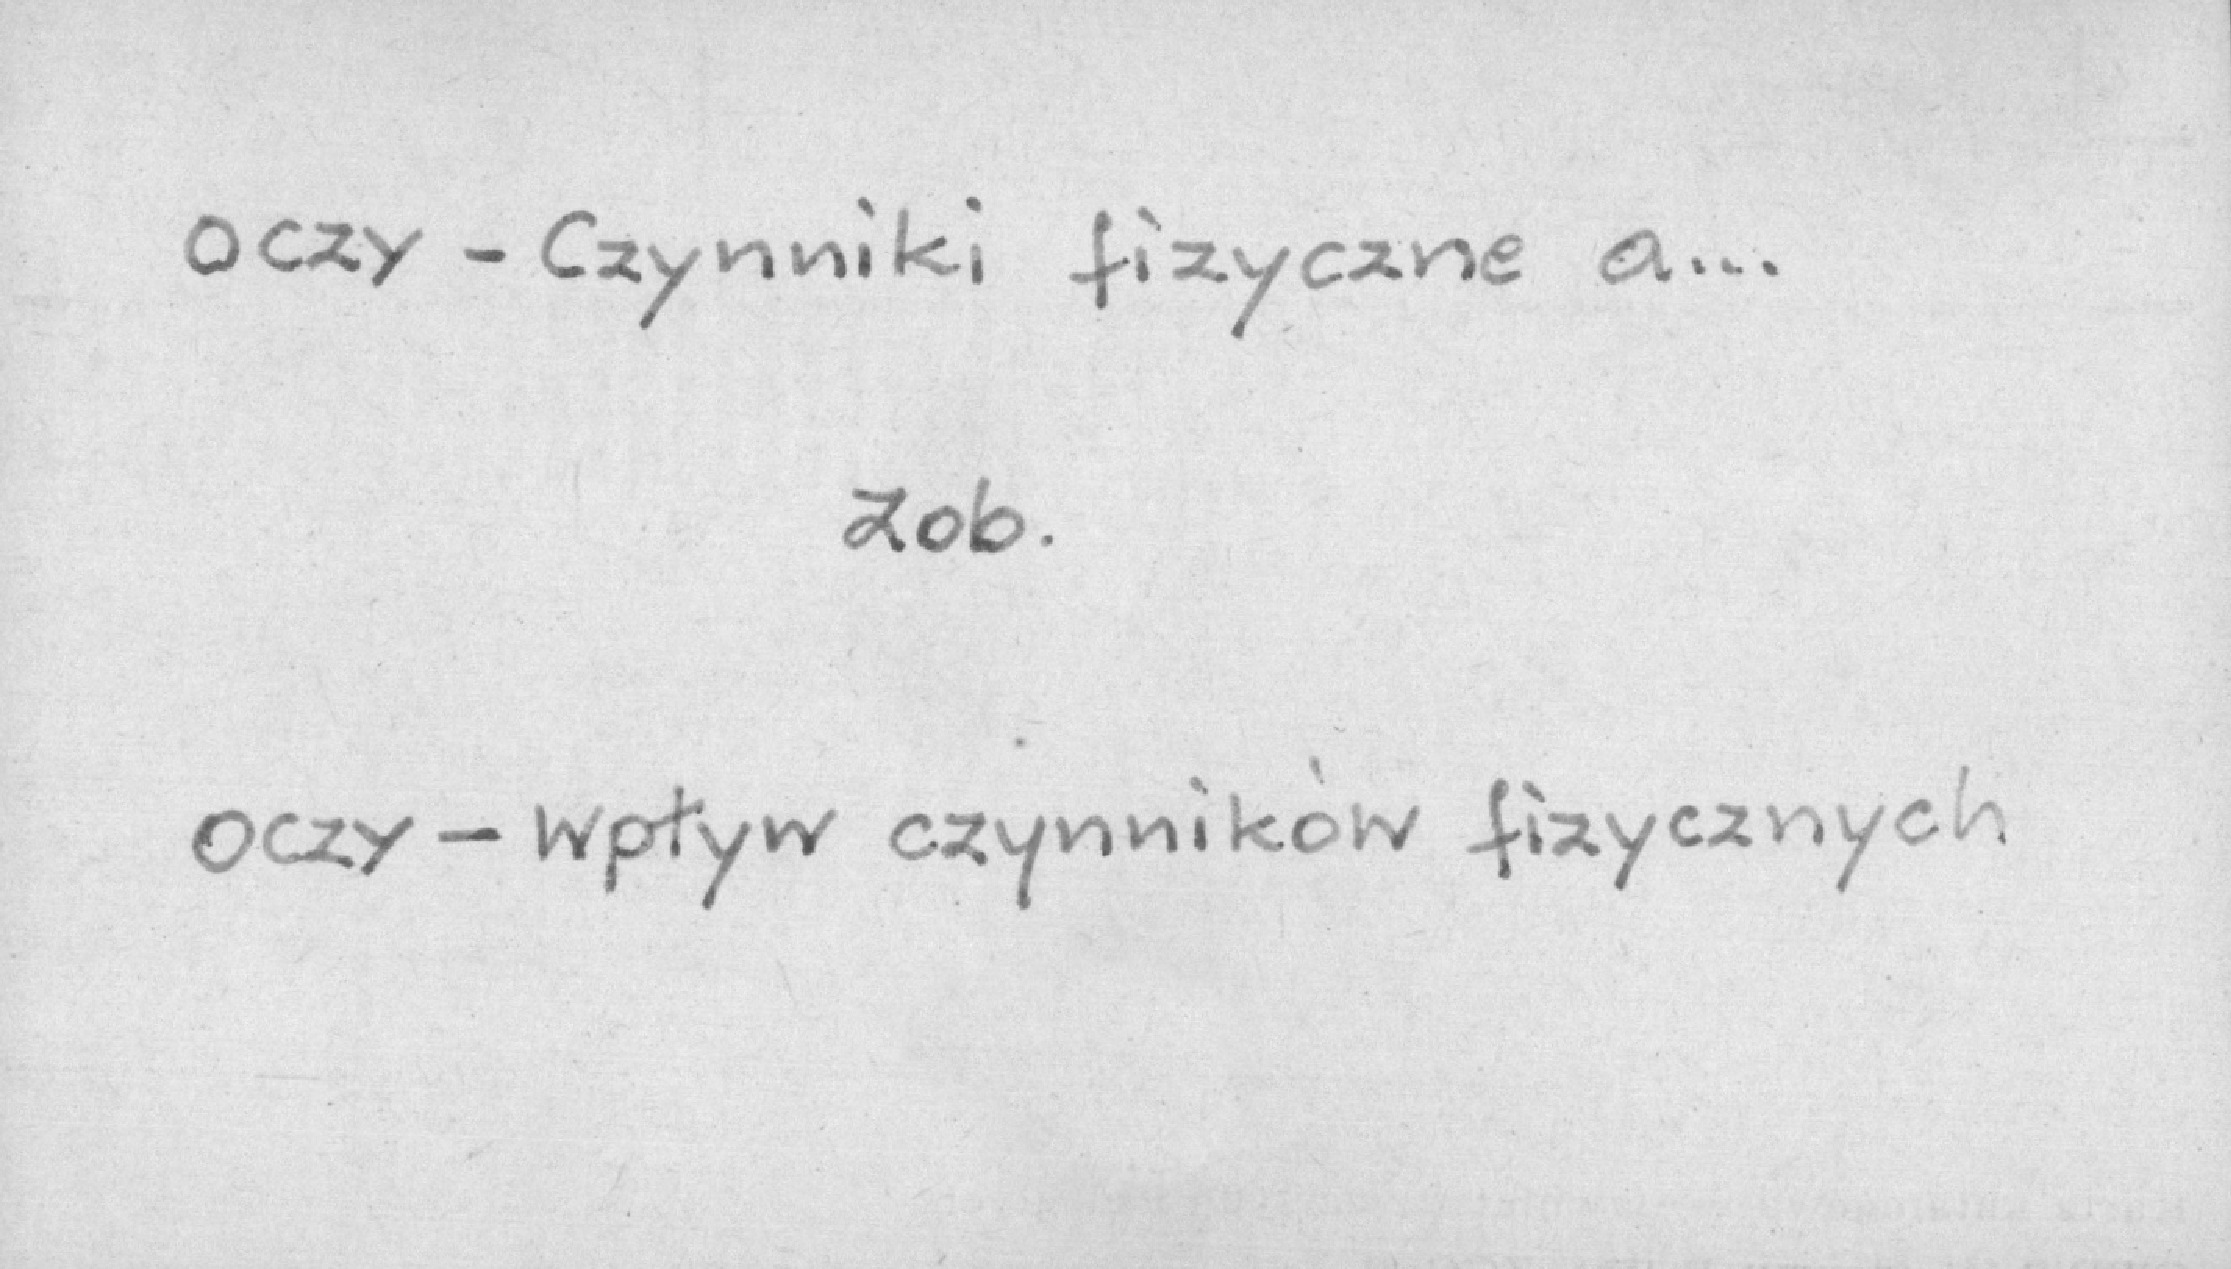 oczy - Czynniki fizyczne a...
Zob.
oczy - wpływ czynników fizycznych